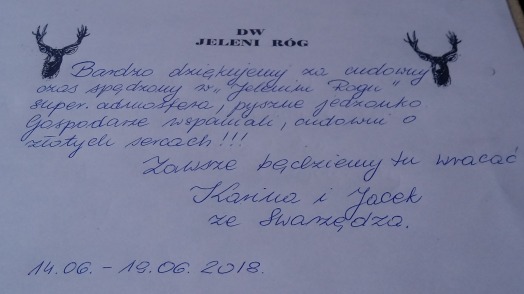 DW
JELENI RÓG
Bardzo dziękujemy za cudowny
czas spędzony w „Jelenim Rogu"
super. admosfera, pyszne jedzonko
Gospodarze wspaniali, cudowni o
złotych sercach!!!
Zawsze będziemy tu wracać
Karina i Jacek
ze Swarzędza.
14.06. - 19.06. 2018.